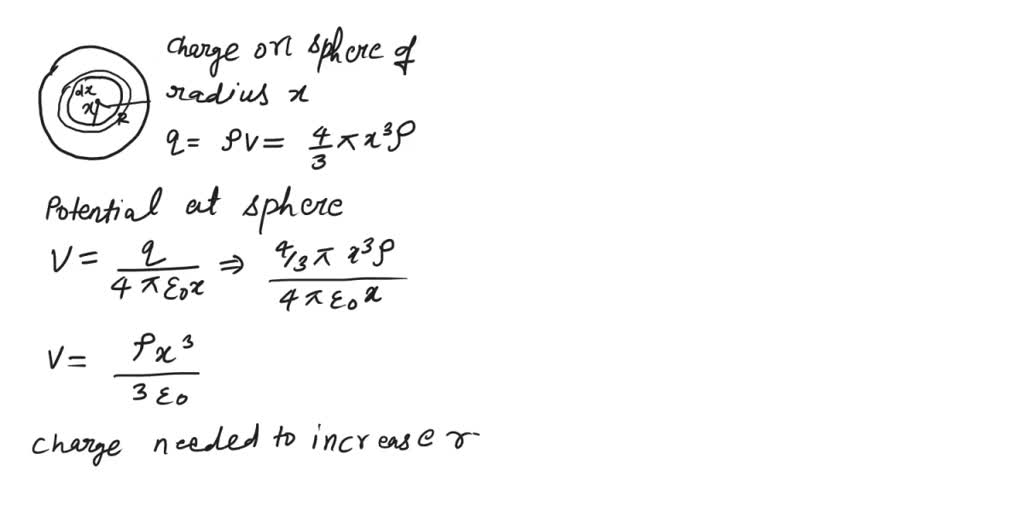 Charge on sphere of
radius x
q = ρV = 4/3 π x³ρ
dx
x
R
Potential at sphere
V = q / 4πε₀x ⇒ 4/3 π x³ρ / 4πε₀x
V = ρx³ / 3ε₀
Charge needed to increase r